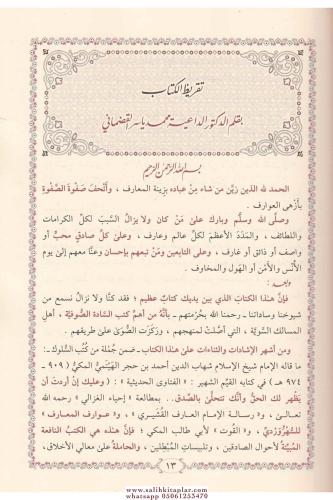 تقريظ الكتاب
بقلم الدكتور الداعية محمد ياسر القضماني
بسم الله الرحمن الرحيم
الحمد لله الذين زيَّن من شاء مِنْ عباده بزينة المعارف ، وأتْحفَ صَفوةَ الصَّفوةِ
بأزْهى العوارف .
وصلَّى الله وسلَّم وبارك علىٰ مَنْ كان ولا يزالُ السَّببَ لكلِّ الكرامات
واللطائف ، والمَدَدَ الأعظمَ لكلِّ عالم وعارف ، وعلىٰ كلِّ صادقٍ محبٍّ أو
واصف أو ذائق أو غارف ، وعلى التابعين ومَنْ تبعهم بإحسان وعنَّا معهم إلىٰ يوم
الأُنْس والأمْن أو الهول والمخاوف .
وبعد :
فإنَّ هٰذا الكتابَ الذي بين يديك كتابٌ عظيم ؛ فقد كنَّا ولا نزالُ نسمع من
شيوخنا وساداتنا ـ رحمنا الله بحُرْمتهم ـ بأنَّهُ من أهمِّ كتب السَّادة الصُّوفيَّة ، أهلِ
المسالك السَّويَّة ، التي أصَّلتْ لمنهجهم ، وركَزَت الصُّوىٰ علىٰ طريقهم .
ومن أشهر الإشادات والثناءات علىٰ هٰذا الكتاب ـ ضمن جُملة من كُتُب السُّلوك ـ :
ما قاله الإمام شيخ الإسلام شهاب الدين أحمد بن حجر الهيتميُّ المكيُّ ( ٩٠٩ -
٩٧٤ هـ ) في كتابه القيِّم الشهير : « الفتاوى الحديثية » : ( وعليك إنْ أردتَ أن
يَظهر لك الحقُّ وأنَّك تتحلَّىٰ بالصِّدق . . بمطالعة « إحياء الغزالي » رحمه الله
تعالىٰ ، و« رسالة الإمام العارف القُشيري » ، و« عوارف المعارف »
للسُّهْرَوَرْدي ، و« القُوت » لأبي طالب المكي ؛ فإنَّ هٰذه هي الكتبُ النافعة
المبيِّنةُ لأحوال الصادقين ، وتلبيسات المُبْطلين ، والحاملةُ علىٰ معالي الأخلاق،
١٣
www.salihkitaplar.com
whatsapp 05061253470